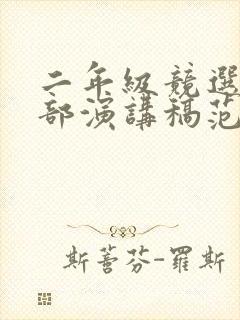 二年級競選
部演講稿范
斯蒈芬-羅斯